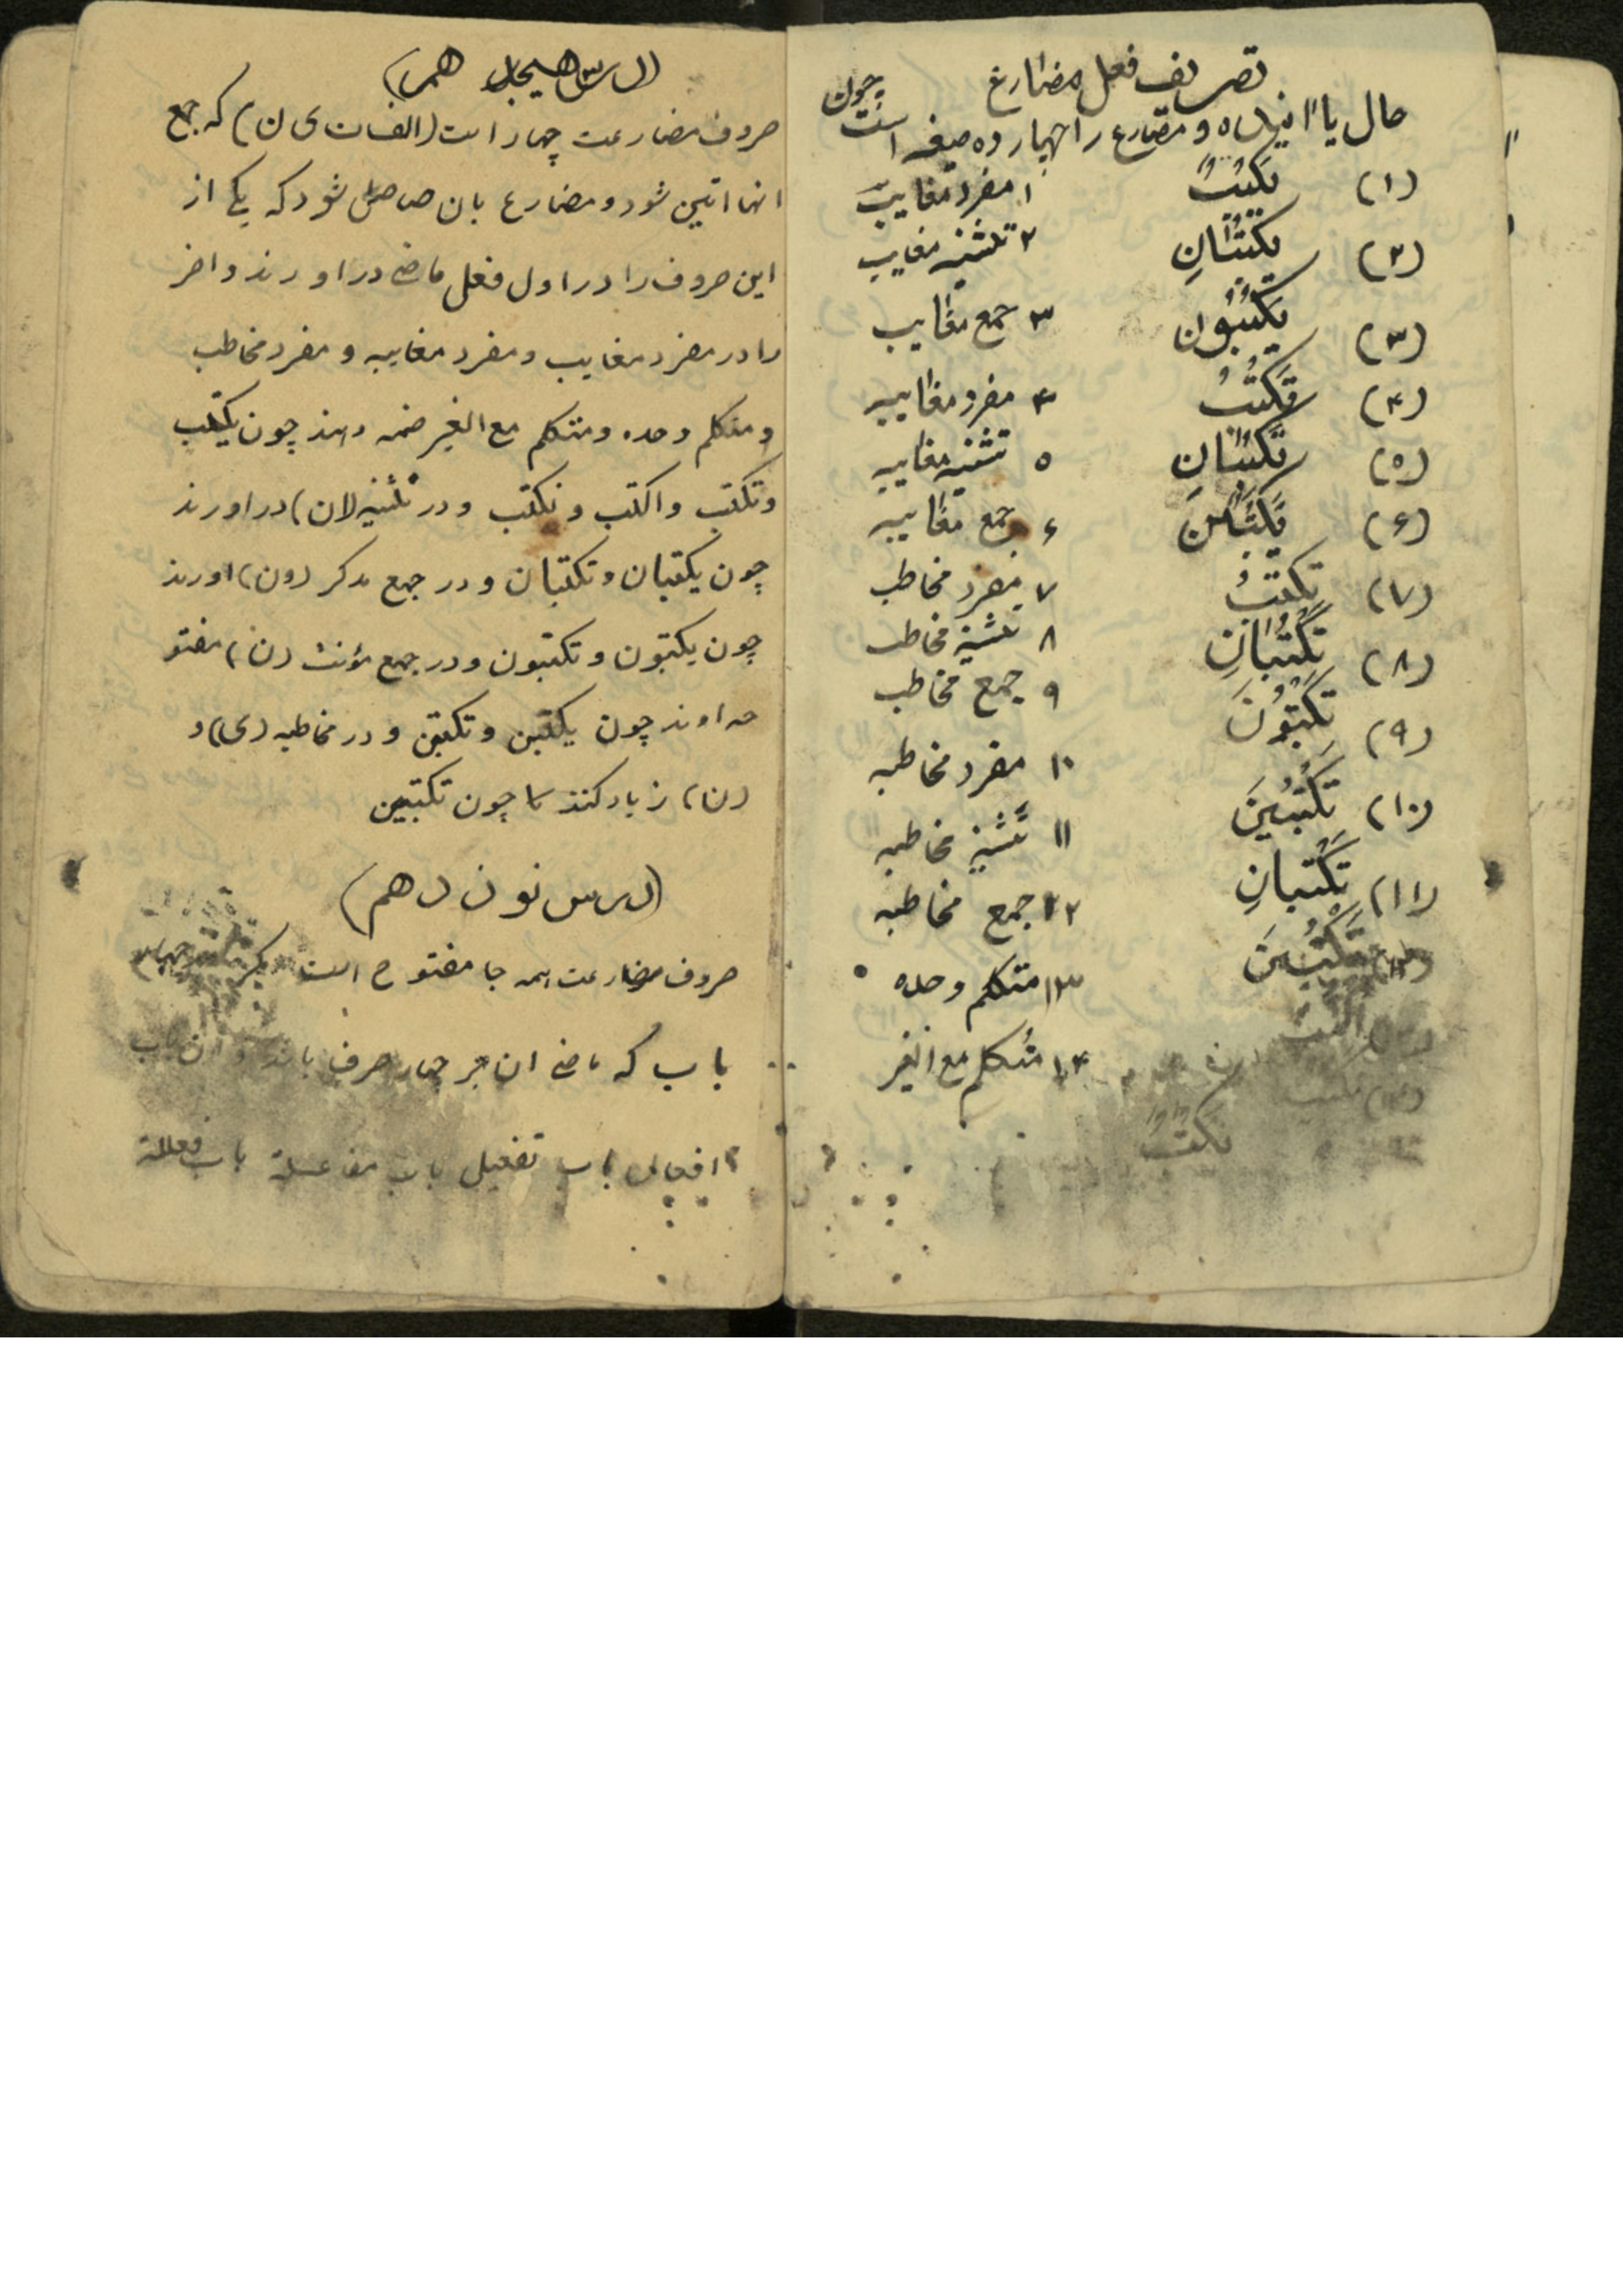 تصریف فعل مضارع
حال یا آینده و مضارع را چهارده صیغه است چون
(۱) یَکتُبُ ۱ مفرد مغایب
(۲) یکتُبانِ ۲ تثنیه مغایب
(۳) یَکتُبُون ۳ جمع مغایب
(۴) تَکتُبُ ۴ مفرد مغایبه
(۵) تَکتُبانِ ۵ تثنیه مغایبه
(۶) یَکتُبنَ ۶ جمع مغایبه
(۷) تکتبُ ۷ مفرد مخاطب
(۸) تَکتُبانِ ۸ تثنیه مخاطب
(۹) تَکتُبُونَ ۹ جمع مخاطب
(۱۰) تَکتُبینَ ۱۰ مفرد مخاطبه
(۱۱) تَکتُبانِ ۱۱ تثنیه مخاطبه
(۱۲) تَکتُبنَ ۱۲ جمع مخاطبه
۱۳ متکلم وحده
۱۴ متکلم مع الغیر
نکتبُ
(درس هیجدهم)
حروف مضارعت چهار است (الف ت ی ن) که جمع
انها اتین شود و مضارع بان حاصل شود که یکی از
این حروف را در اول فعل ماضی در اورند و اخر
را در مفرد مغایب و مفرد مغایبه و مفرد مخاطب
و متکلم وحده و متکلم مع الغیر ضمه دهند چون یکتب
و تکتب و اکتب و نکتب و در تثنیه (ان) در اورند
چون یکتبان و تکتبان و در جمع مذکر (ون) اورند
چون یکتبون و تکتبون و در جمع مؤنث (ن) مفتو
حه اوند چون یکتبن و تکتبن و در مخاطبه (ی) و
(ن) زیاد کنند چون تکتبین
(درس نوزدهم)
حروف مضارعت همه جا مفتوح است مگر چهار
باب که ماضی ان بر چهار حرف باشد و ان باب
افعال باب تفعیل باب مفاعلة باب فعللة